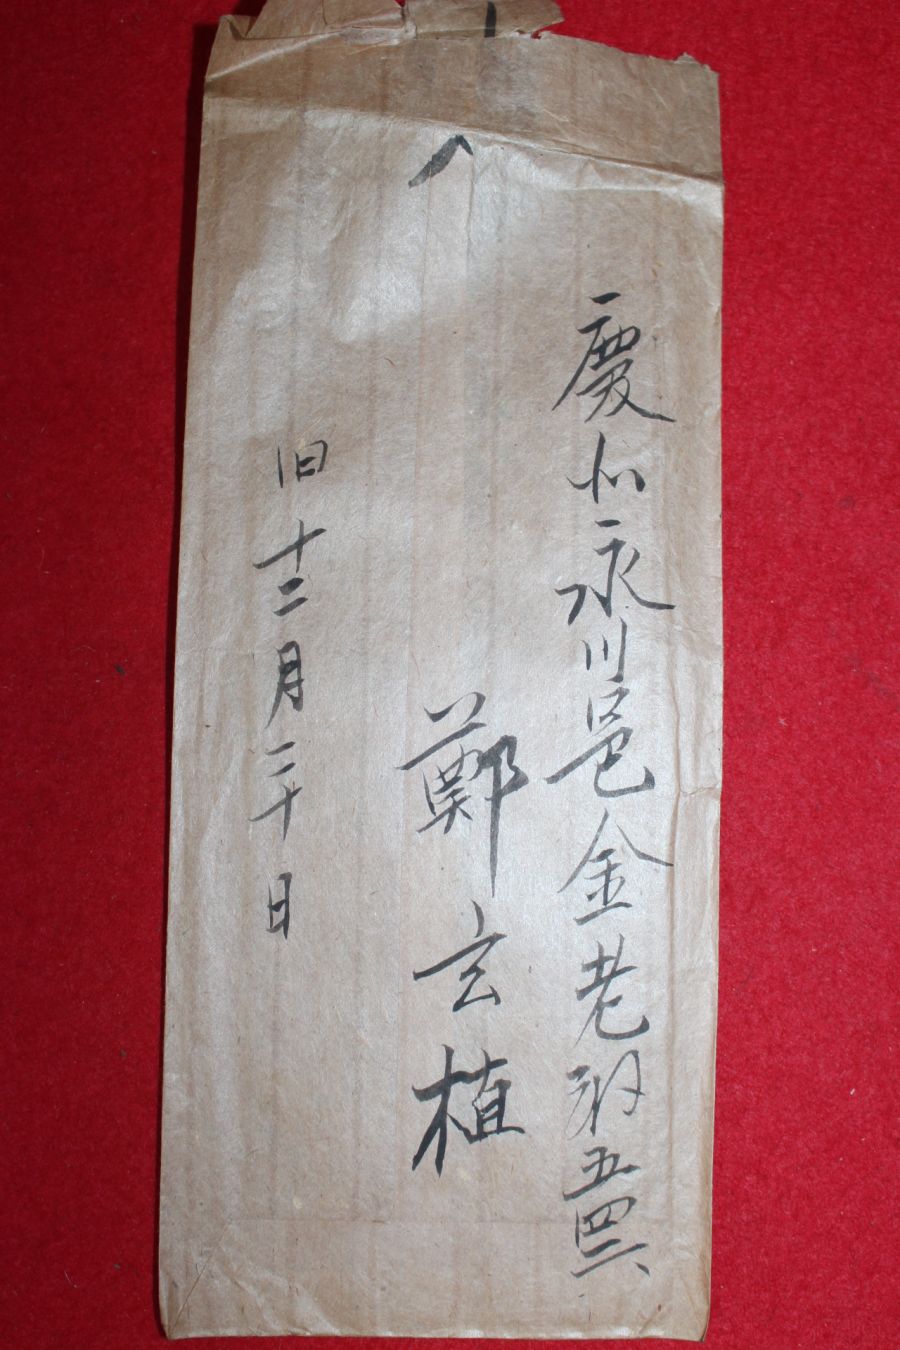 慶北永川邑金老洞五四六
鄭玄植
旧十二月二十日